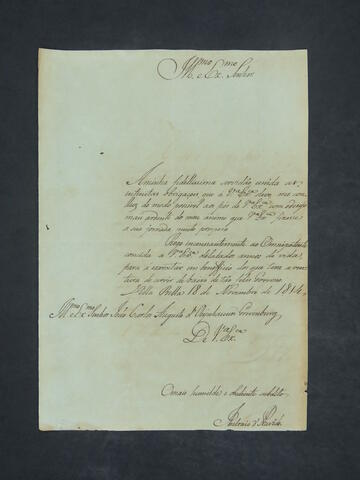 Illmo e Exmo Senhor
A minha fidelissima servidão unida as
restrictas obrigaçoens que a Va Exa devo me con
duz do modo possivel aos pés de Va Exa com o dezejo
mais ardente do meu animo que Va Exa fizesse
a sua jornada muito
Rogo incessantemente ao Omnipotente
conceda a Va Exa dilatados annos de vida,
para a exercitar em beneficio dos que tem a ventu
ra de servir de baixo de tão feliz Governo
Villa Bella 18 de Novembro de 1814.
Illmo e Exmo Senhor João Carlos Augusto d'Oeynhausen Gravenburg
De Va Exa
O mais humilde e obediente subdito
Antonio d'